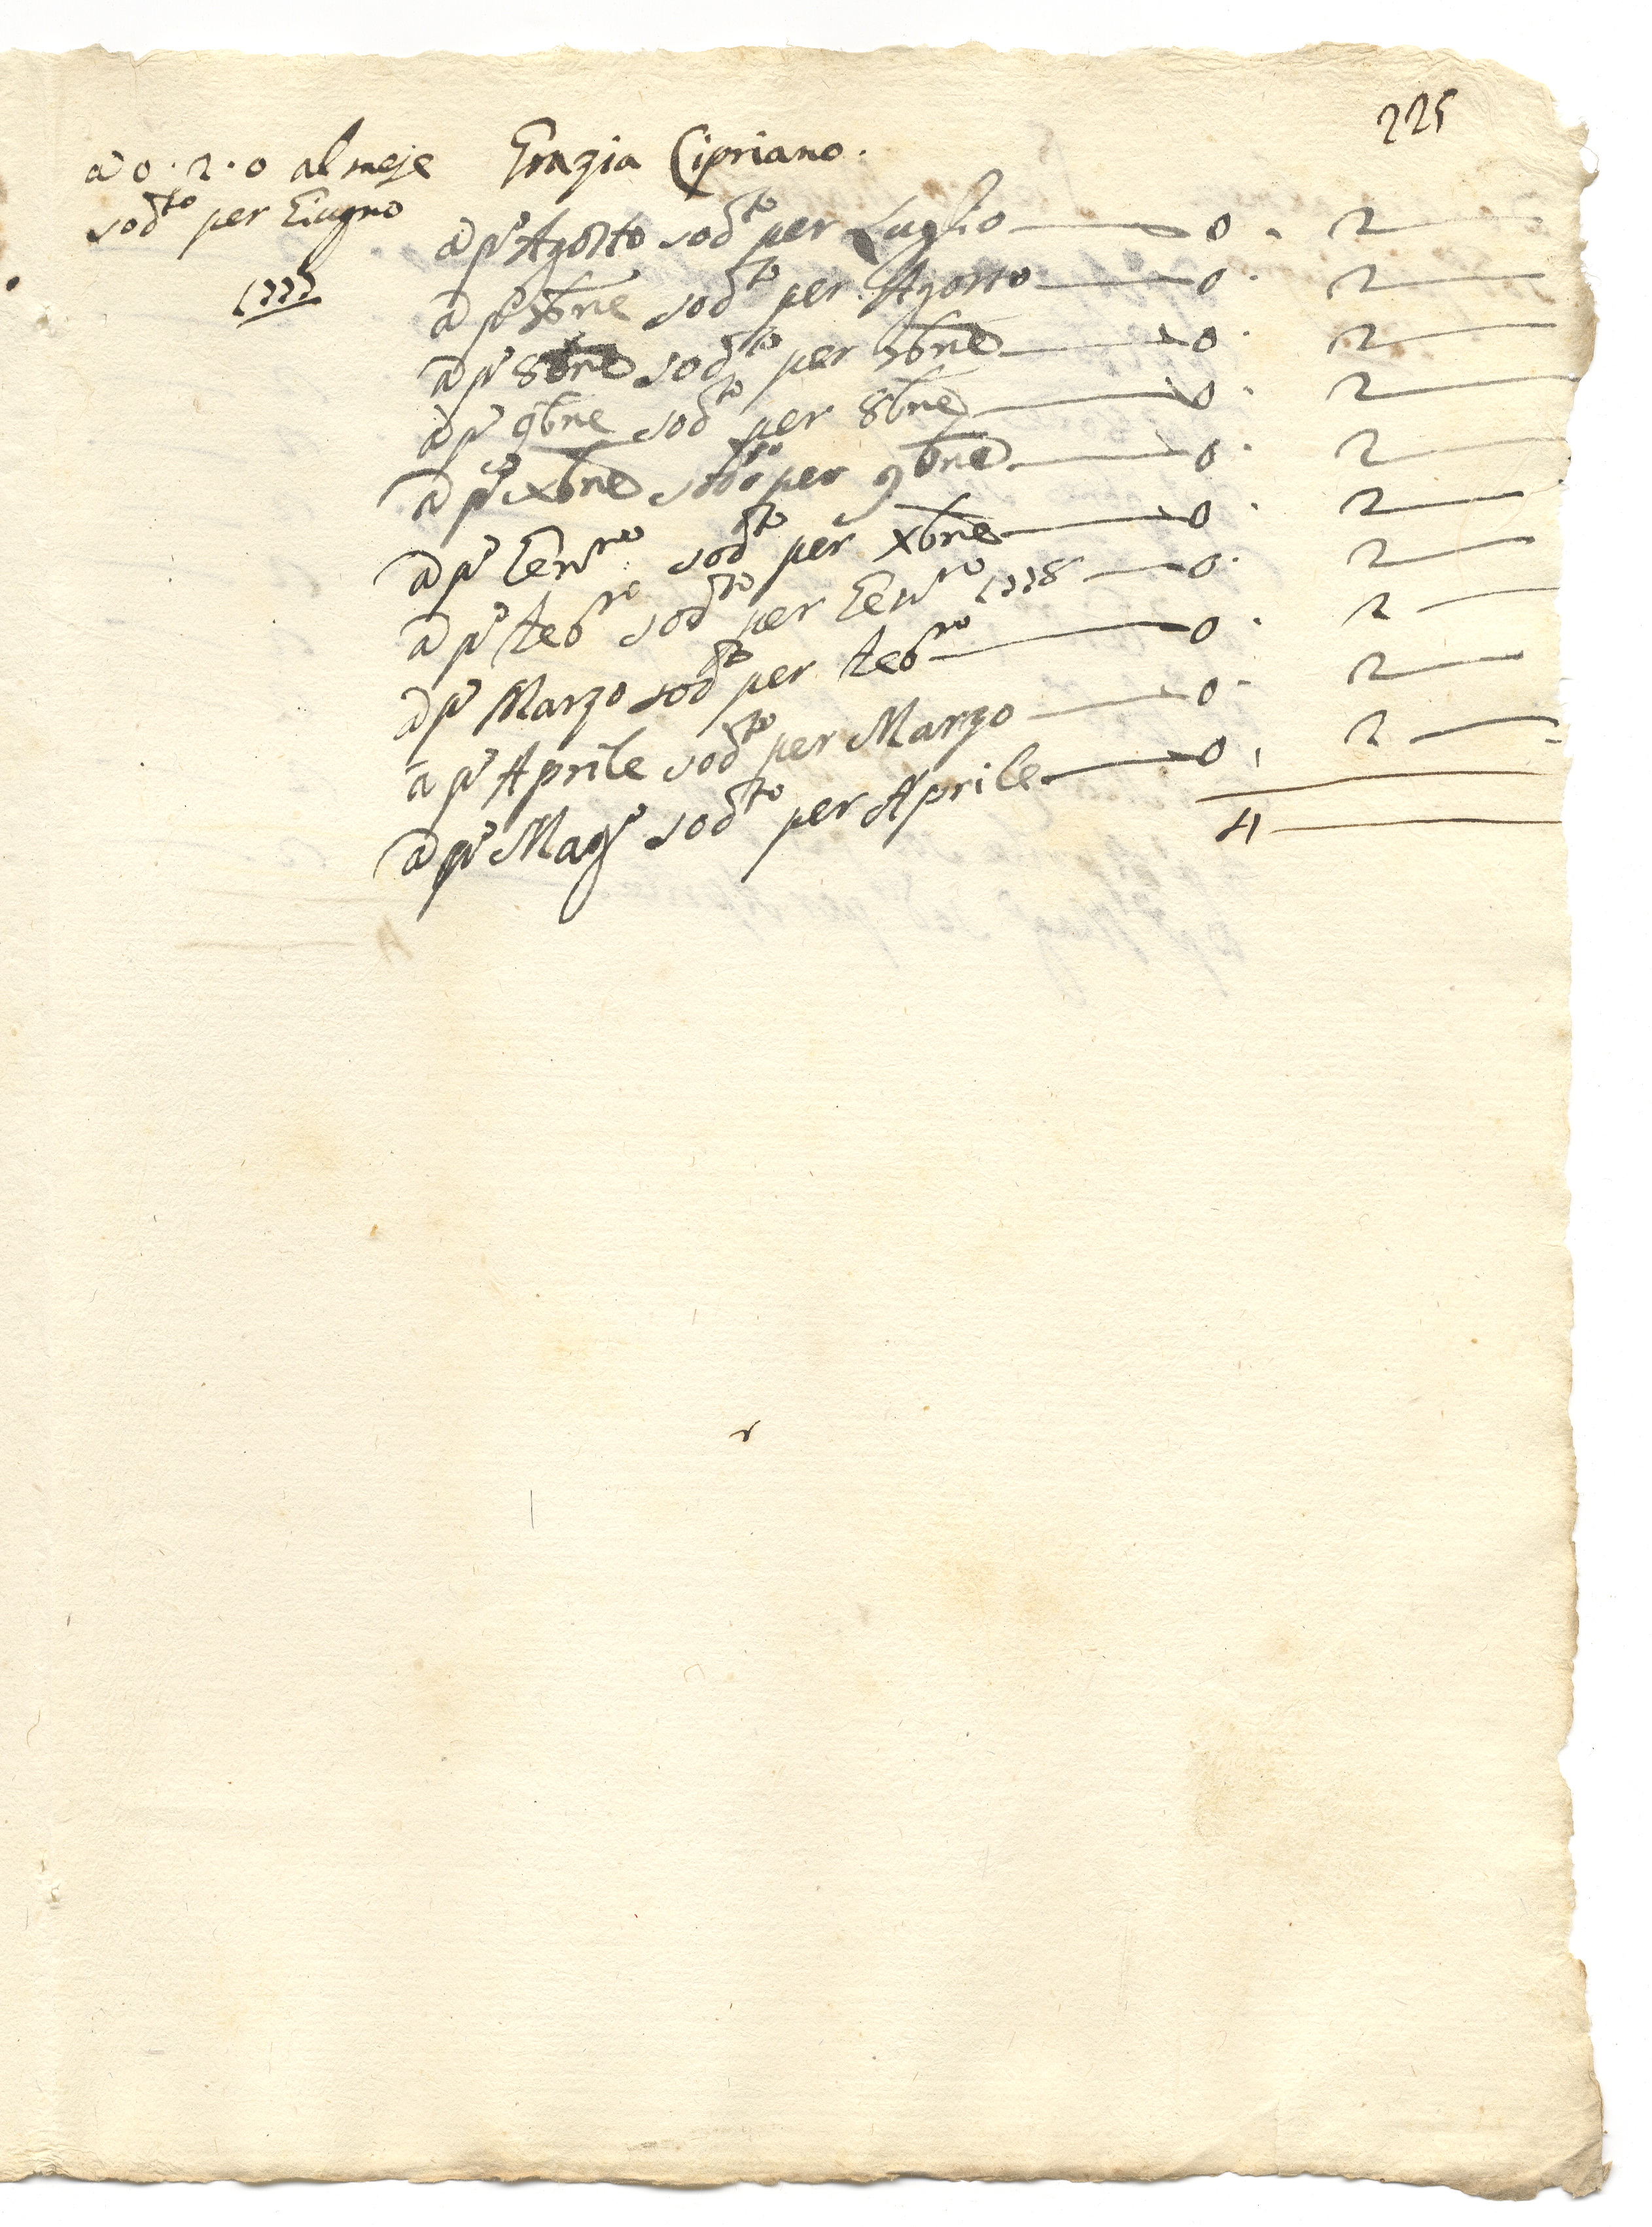 225
a 0.2.0 al mese Grazia Cipriano.
sod.to per Giugno
1777
a p.o Agosto sod.to per Luglio — 0. 2 —
a p.o 7bre sod.to per Agosto — 0. 2 —
a p.o 8bre sod.to per 7bre — 0. 2 —
a p.o 9bre sod.to per 8bre — 0. 2 —
a p.o xbre sod.to per 9bre — 0. 2 —
a p.o Gen.ro sod.to per xbre — 0. 2 —
a p.o feb.ro sod.to per Gen.ro 1778 — 0. 2 —
a p.o Marzo sod.to per feb.ro — 0. 2 —
a p.o Aprile sod.to per Marzo — 0. 2 —
a p.o Mag.o sod.to per Aprile — 0. 2 —
4 —